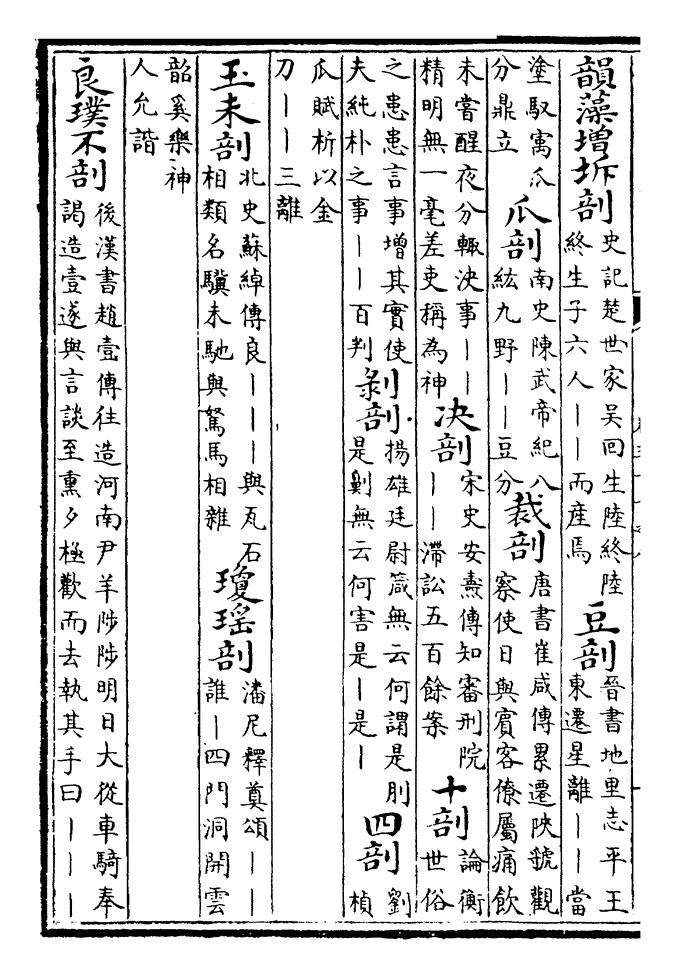 韻藻增坼剖
史記楚世家吳回生陸終陸
終生子六人——而産焉
豆剖
晉書地里志平王
東遷星離——當
塗馭寓瓜
分鼎立
瓜剖
南史陳武帝紀八
紘九野——豆分
裁剖
唐書崔咸傳累遷陜虢觀
察使日與賓客僚屬痛飲
未嘗醒夜分輒決事——
精明無一毫差吏稱為神
决剖
宋史安燾傳知審刑院
——滯訟五百餘案
十剖
論衡
世俗
之患患言事增其實使
夫純朴之事——百判
剝剖
揚雄廷尉箴無云何謂是刖
是劓無云何害是—是—
四剖
劉
楨
瓜賦析以金
刀——三離
玉未剖
北史蘇綽傳良———與瓦石
相類名驥未馳與駑馬相雜
瓊瑶剖
潘尼釋奠頌——
誰—四門洞開雲
韶奚樂神
人允諧
良璞不剖
後漢書趙壹傳往造河南尹羊陟陟明日大從車騎奉
謁造壹遂與言談至熏夕極歡而去執其手曰———